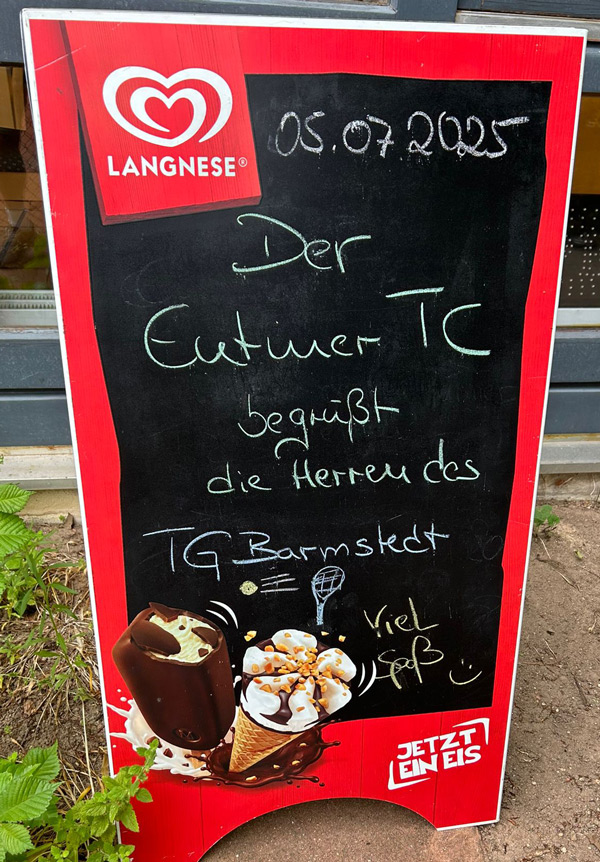 LANGNESE®
05.07.2025
Der
Eutiner TC
begrüßt
die Herren des
TG Barmstedt
Viel
Spaß
JETZT
EIN EIS